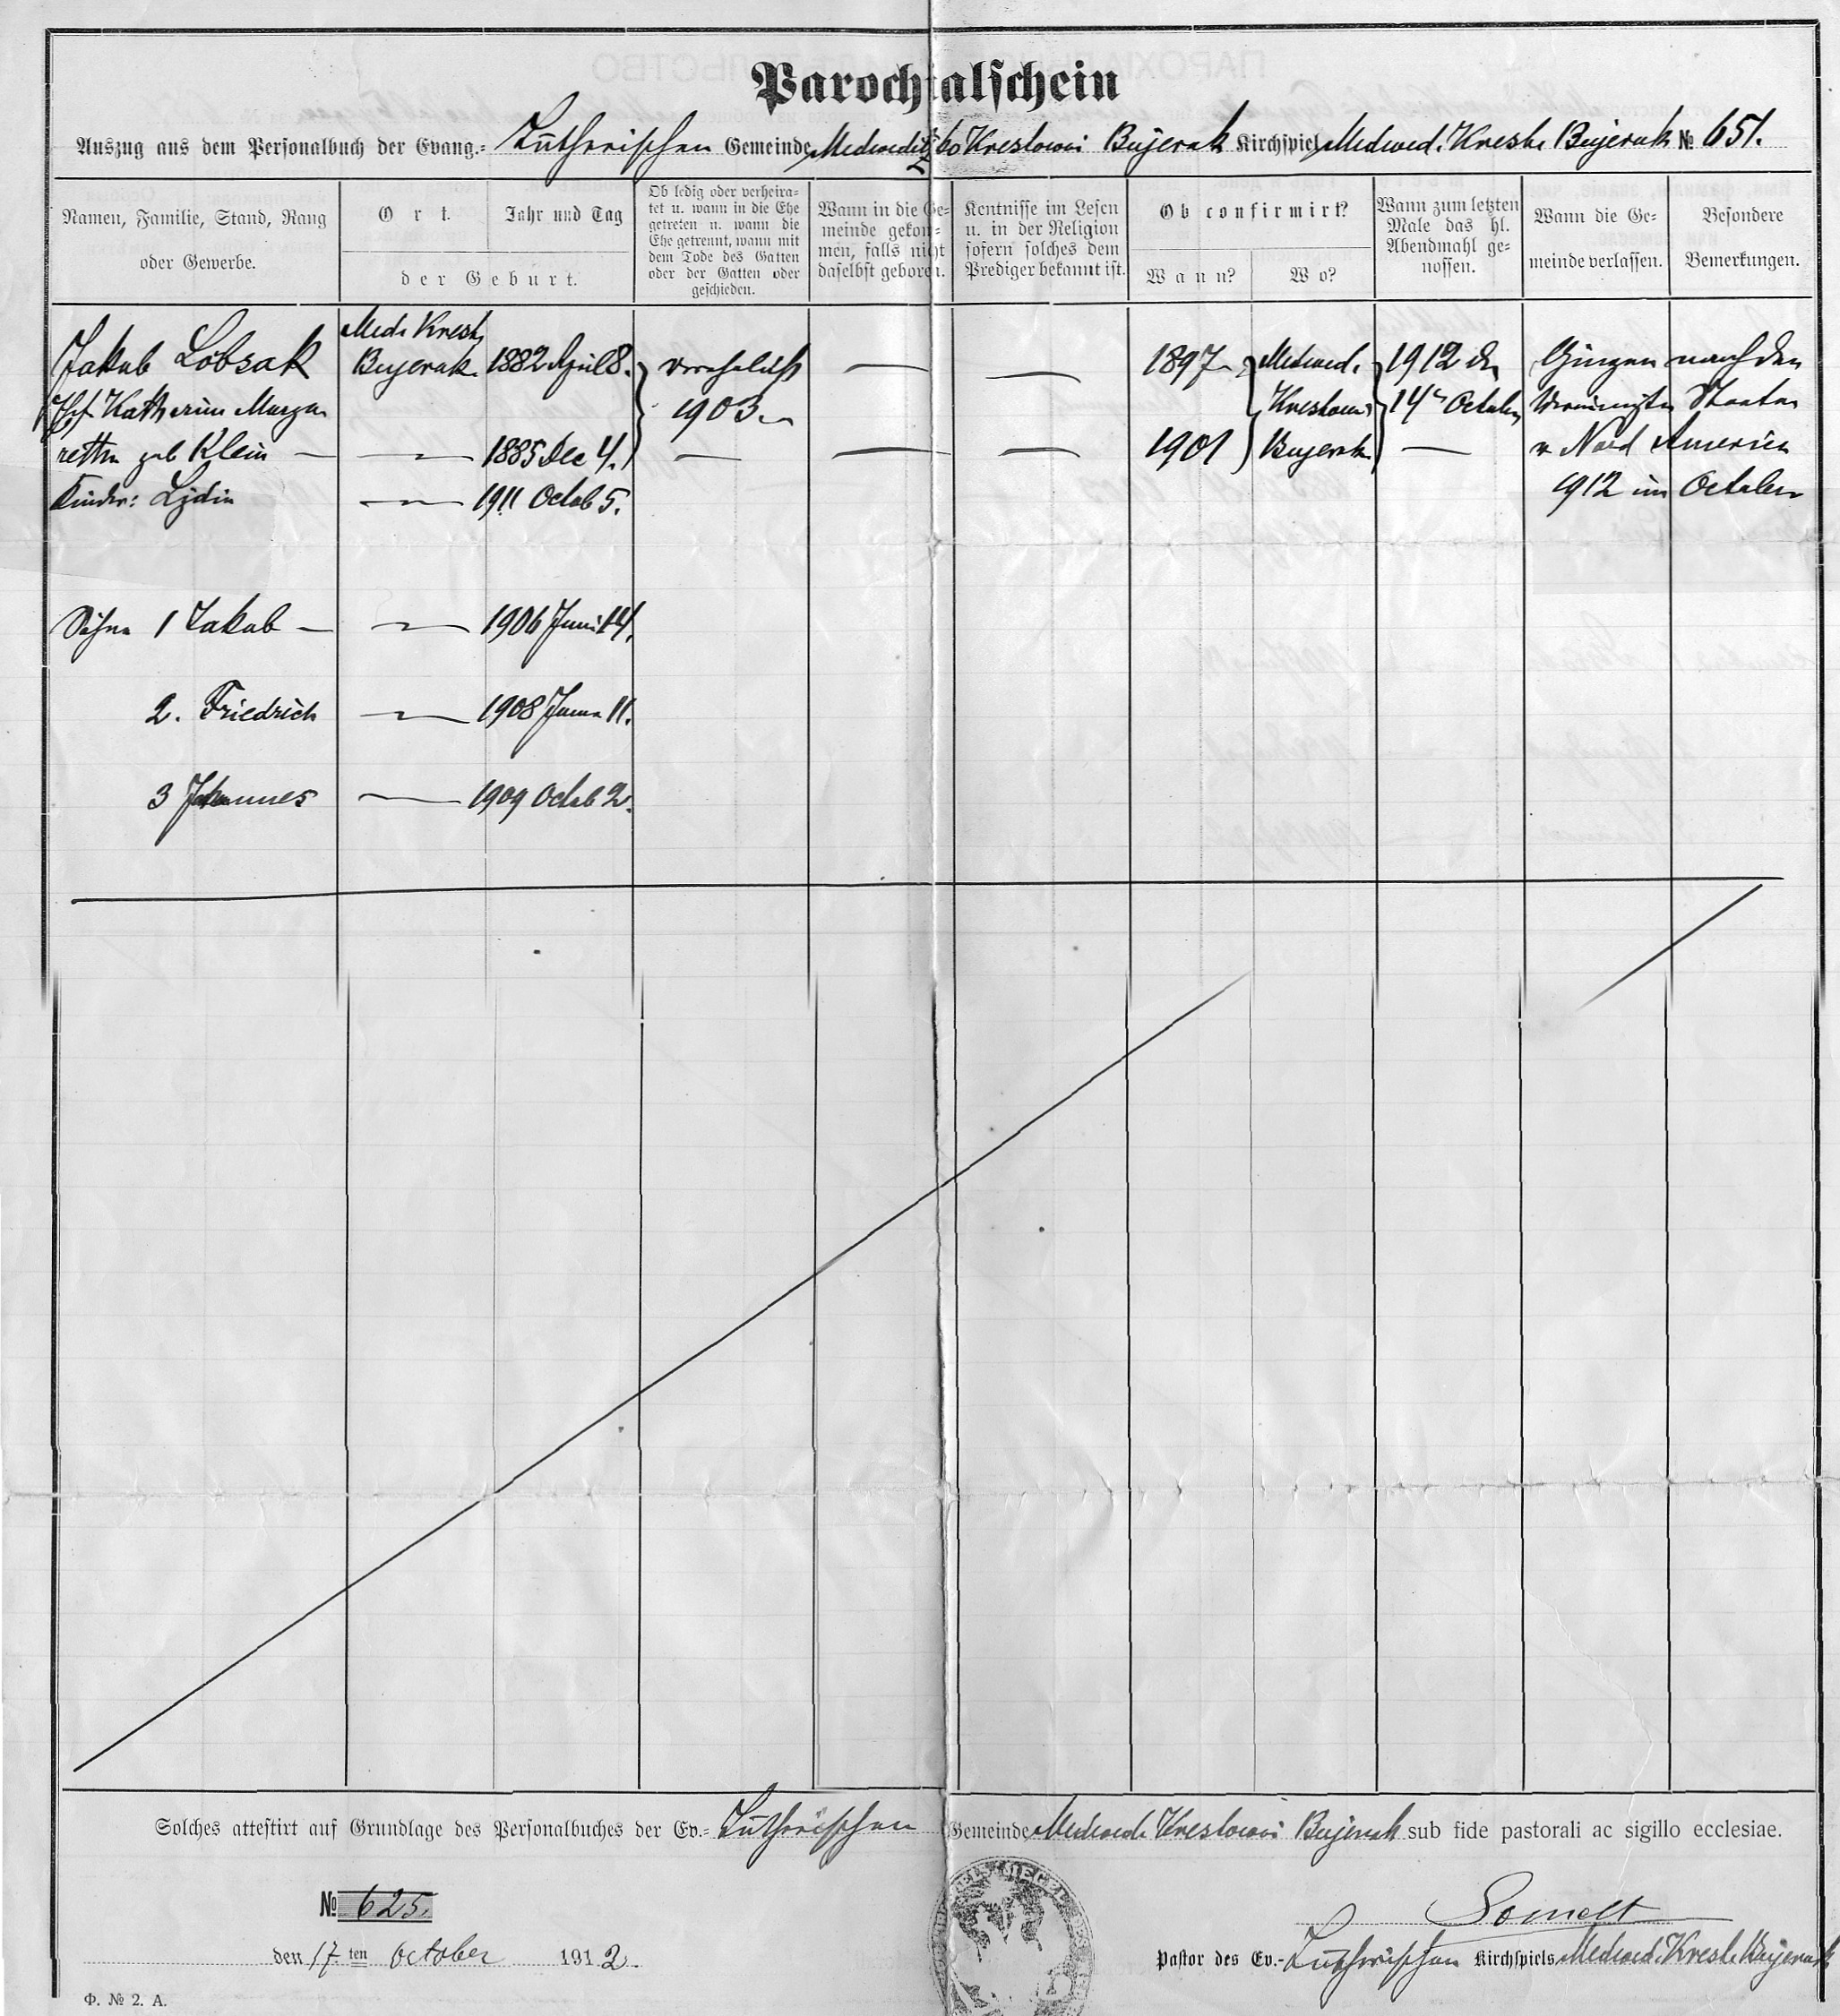 Parochialschein
Auszug aus dem Personalbuch der Evang.= Lutherischen Gemeinde Medwedizko Krestowoi Bujerak Kirchspiel Medwed. Krest. Bujerak № 651.
Namen, Familie, Stand, Rang
oder Gewerbe.
Ort.
Jahr und Tag
der Geburt.
Ob ledig oder verheira=
tet u. wann in die Ehe
getreten u. wann die
Ehe getrennt, wann mit
dem Tode des Gatten
oder der Gatten oder
geschieden.
Wann in die Ge=
meinde gekom=
men, falls nicht
daselbst geboren.
Kentnisse im Lesen
u. in der Religion
sofern solches dem
Prediger bekannt ist.
Ob confirmirt?
Wann?
Wo?
Wann zum letzten
Male das hl.
Abendmahl ge=
nossen.
Wann die Ge=
meinde verlassen.
Besondere
Bemerkungen.
Med. Krest.
Jakob Lobsak Bujerak. 1882 April 8. verehelicht — — 1897 Medwed. 1912 den Gingen nach den
Katharina Marga 1903 Krestowoi 14 October Vereinigten Staaten
retha geb Klein — — 1885 Dec 4. — — — 1901 Bujerak — v Nord America
Kinder: Lydia — 1911 Octob 5. 1912 im October
Söhne 1 Jakob — — 1906 Juni 14.
2. Friedrich — 1908 Janua 11.
3 Johannes — 1909 Octob 2.
Solches attestirt auf Grundlage des Personalbuches der Ev.= Lutherischen Gemeinde Medwed. Krestowoi Bujerak sub fide pastorali ac sigillo ecclesiae.
№ 625.
den 17 ten October 1912.
Pastor des Ev.- Lutherischen Kirchspiels Medwed. Krest. Bujerak
Ф. № 2. А.